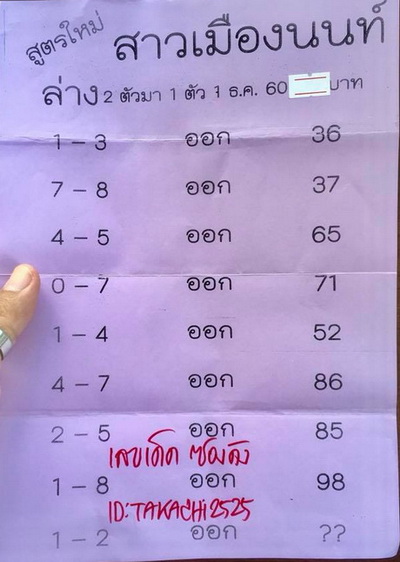 สูตรใหม่ สาวเมืองนนท์
ล่าง 2 ตัวมา 1 ตัว 1 ธ.ค. 60 บาท
1 – 3 ออก 36
7 – 8 ออก 37
4 – 5 ออก 65
0 – 7 ออก 71
1 – 4 ออก 52
4 – 7 ออก 86
2 – 5 ออก 85
เลขเด็ด ซองดัง
1 – 8 ออก 98
ID:TAKACHI2525
1 – 2 ออก ??